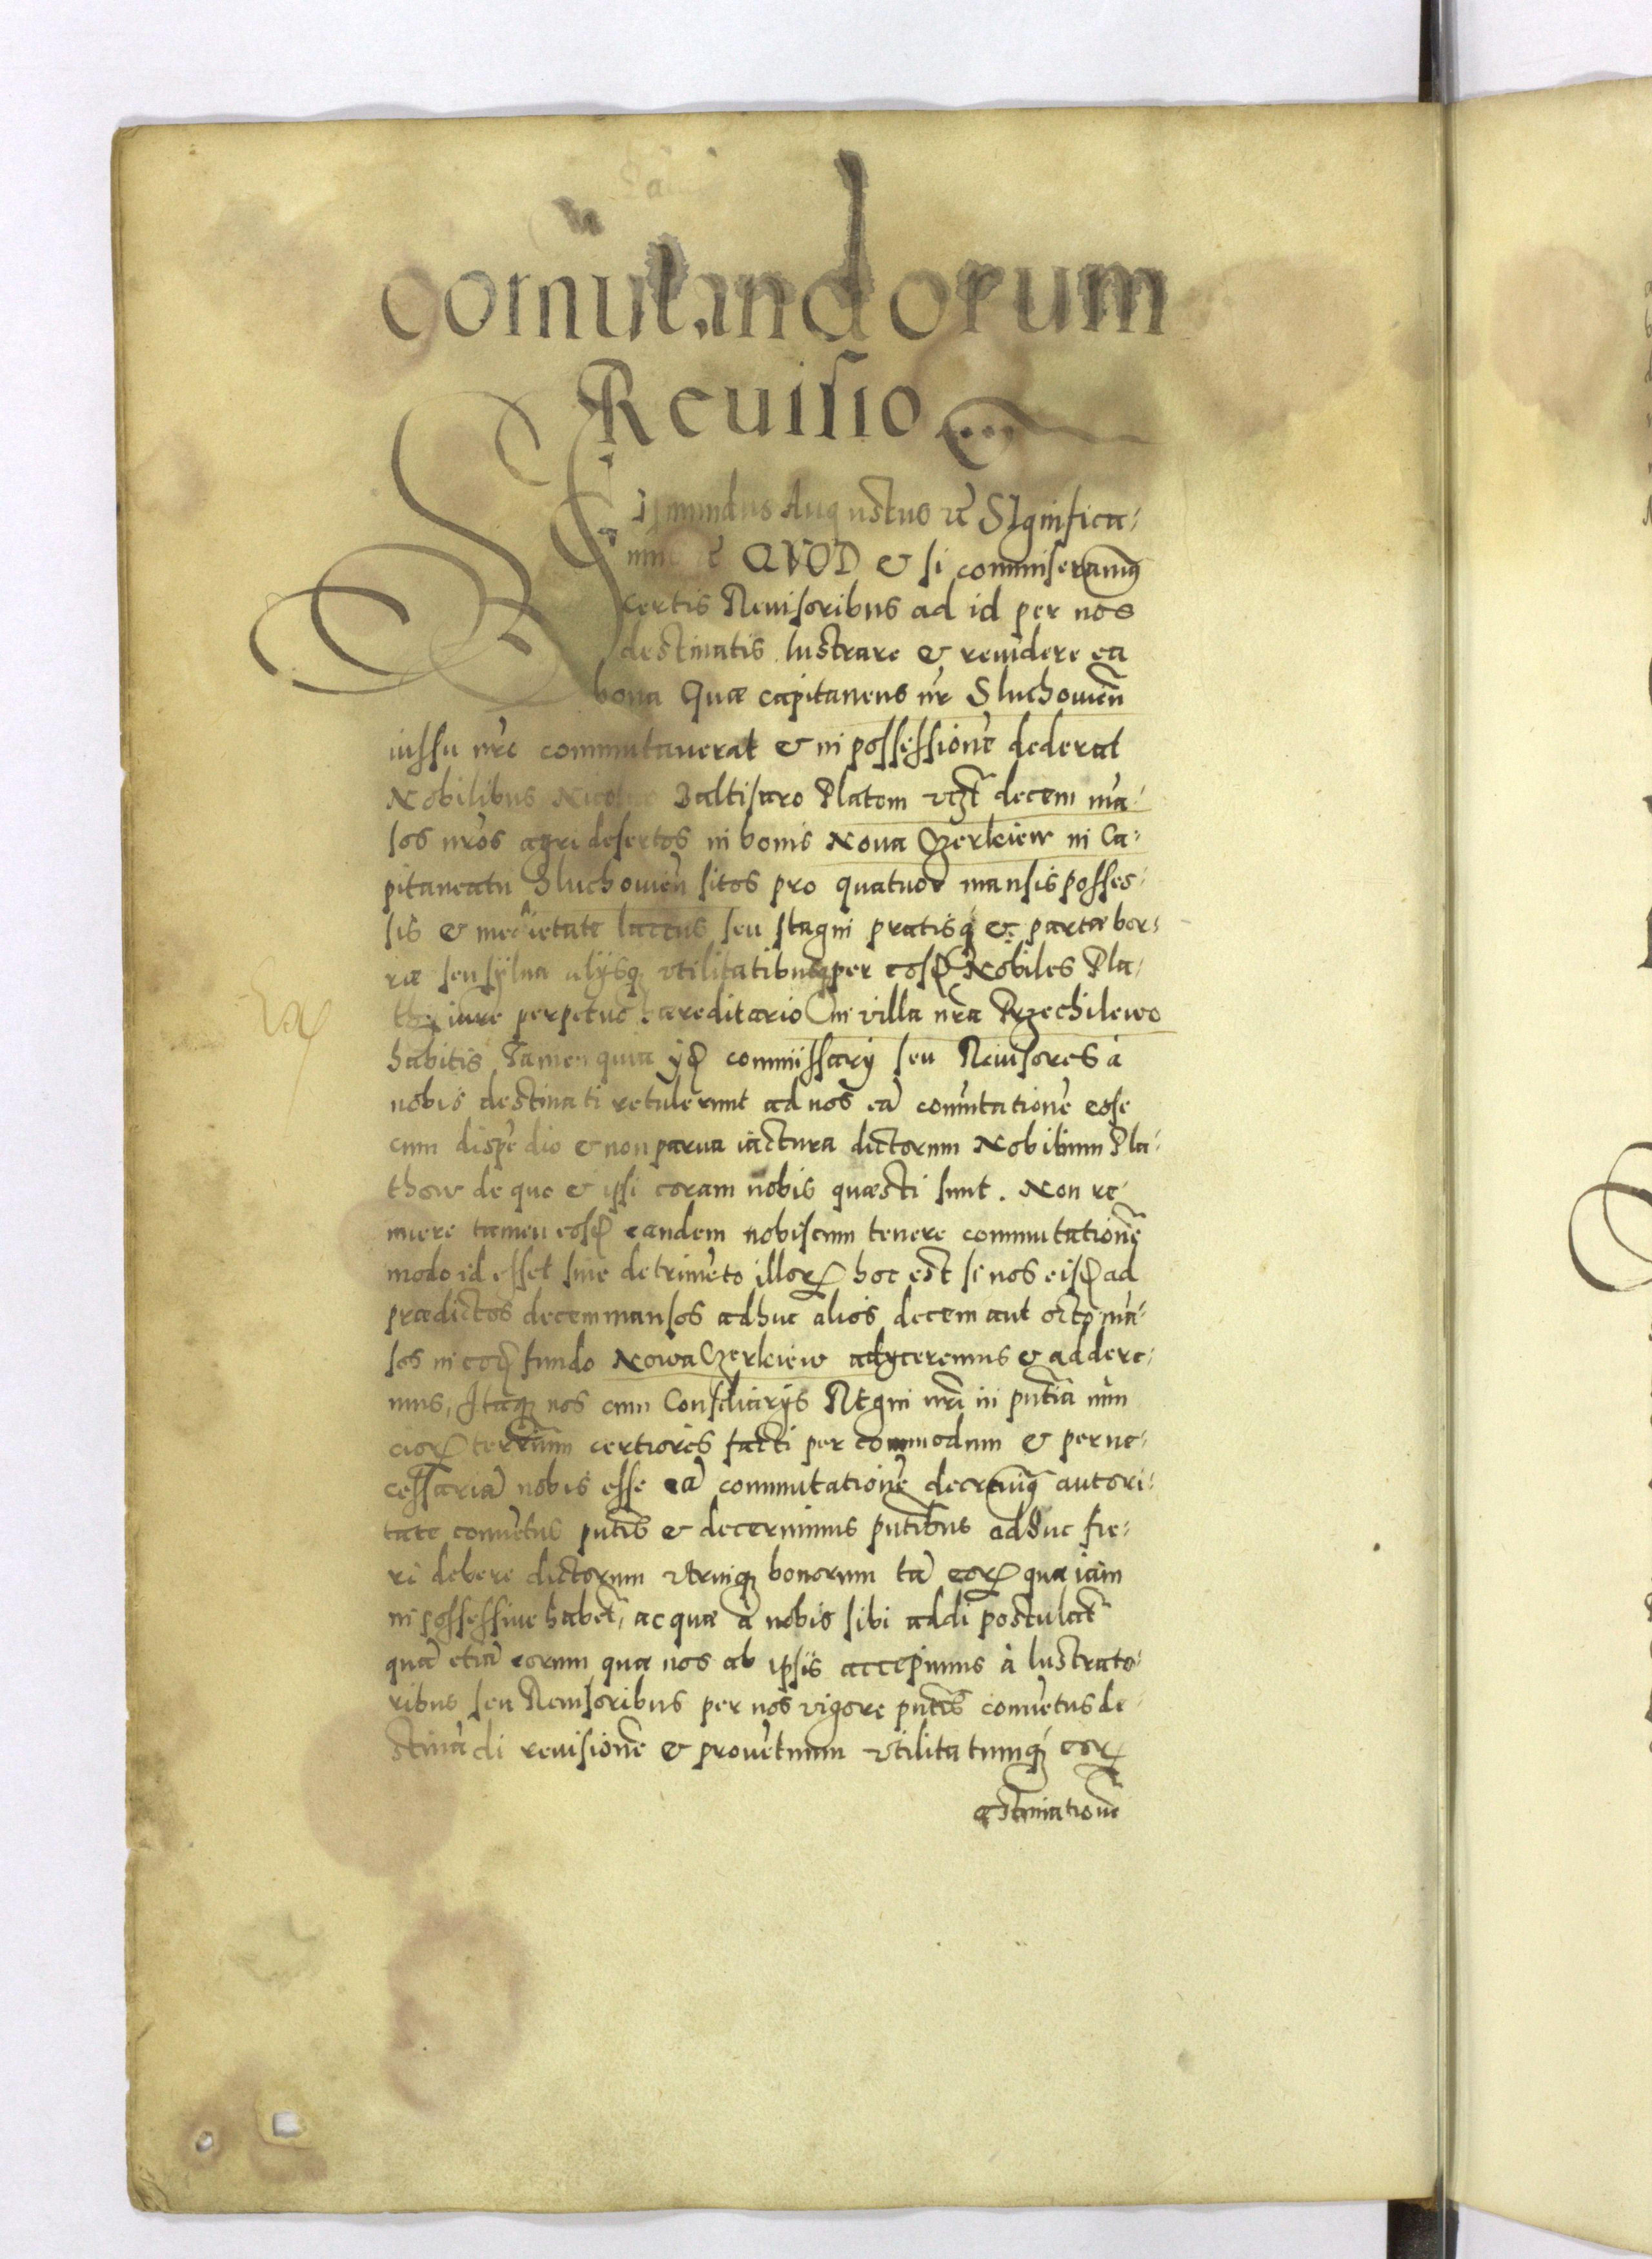 comutandorum
Reuisio
Sigismundus Augustus &c̃ SIgnifica-
mus &c̃ QVOD & si commiseramus
certis Reuisoribus ad id per nos
destinatis lustrare & reuidere ea
bona Quæ capitaneus nr̃ Sluchowieñ
iussu nr̃o commutauerat & in possessionẽ dederat
Nobilibus Nicolao Baltisaro Platom vꝫt decem mã-
sos nr̃os agri desertos in bonis Noua Czerkiew in Ca-
pitaneatu Sluchowieñ sitos pro quatuor mansis posses-
sis & medietate lacus seu stagni pratisq́ & parte bor-
ræ seu sylua alijsq utilitatibus per eosđ Nobiles Pla-
thy iure perpetuo hæreditario in villa nr̃a Przechilewo
habitis Tamen quia ijđ commissarij seu Reuisores à
nobis destinati retulerunt ad nos eã comutationẽ esse
cum dispẽdio & non parua iactura dictorum Nobilium Pla-
thow de quo & ipsi coram nobis quæsti sunt. Non re-
nuere tamen eosđ eandem nobiscum tenere commutationẽ
modo id esset sine detrimẽto illorꝝ hoc est si nos eisđ ad
prædictos decem mansos adhuc alios decem aut octo mã-
sos in eođ fundo Nowa Czerkiew adijceremus & addere-
mus, Itaq nos cum Consiliarijs Regni nr̃i in pñtia nun
ciorꝝ terrarum certiores facti per commodum & perne-
cessariã nobis esse eã commutationẽ decreuimus autori-
tate conuẽtus pñtis & decernimus pñtibus adhuc fie-
ri debere dictorum utrinq bonorum tã eorꝝ quæ iam
in possessiõe habẽt, ac quæ à nobis sibi addi postulãt
quã etiã eorum quæ nos ab ipsis accepimus à lustrato-
ribus seu Reuisoribus per nos vigore pñtis conuẽtus de-
stinãdi reuisionẽ & prouẽtuum utilitatumq́ eorꝝ
æstimationẽ